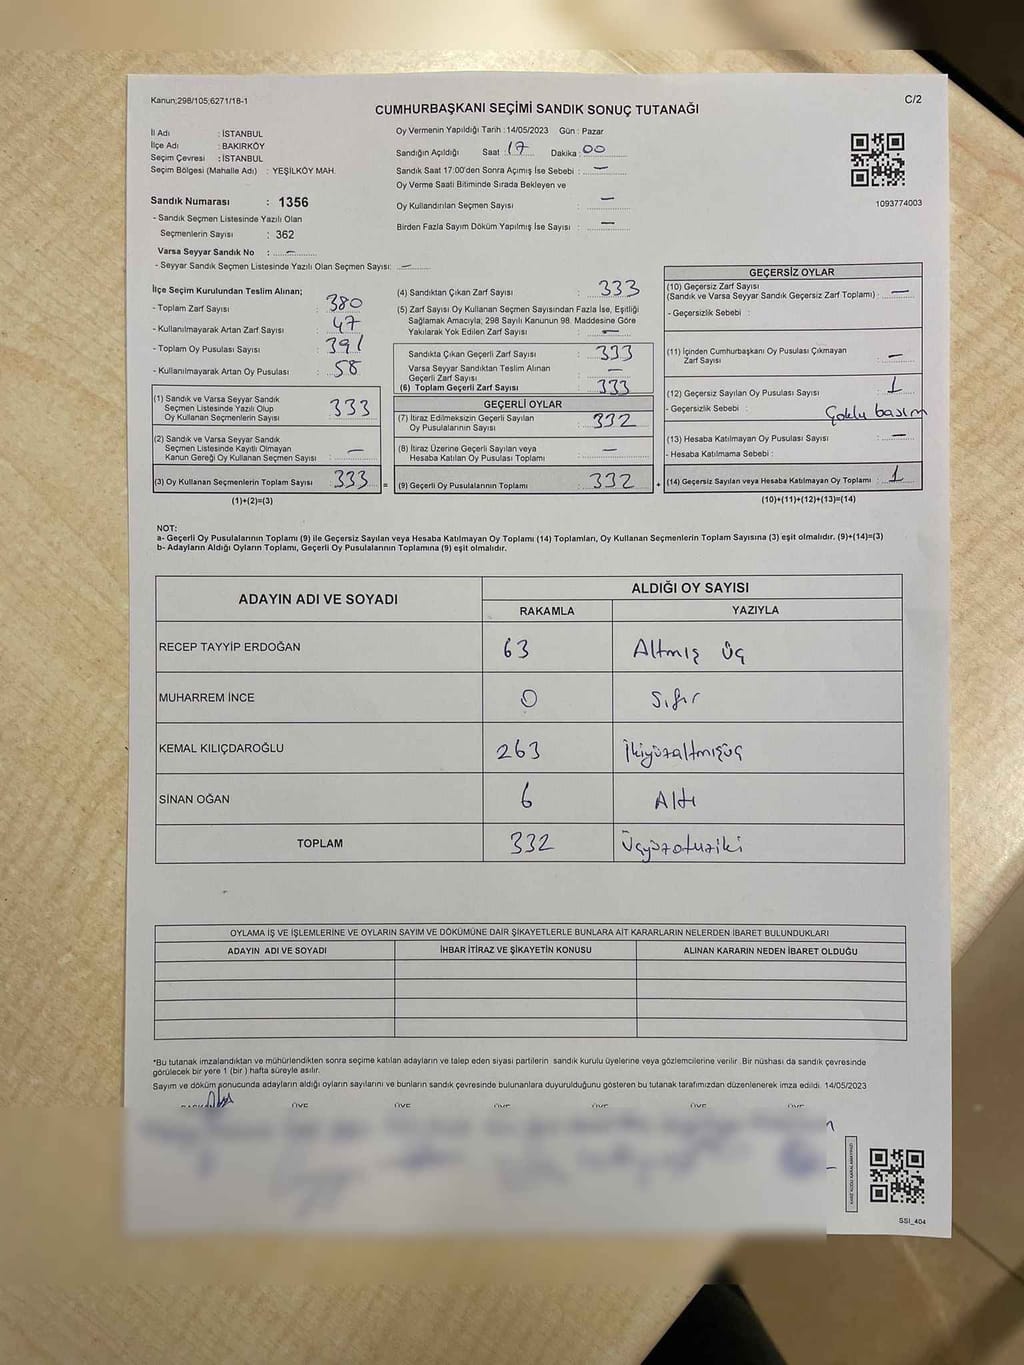 Kanun;298/105;6271/18-1
CUMHURBAŞKANI SEÇİMİ SANDIK SONUÇ TUTANAĞI
C/2
İl Adı : İSTANBUL
İlçe Adı : BAKIRKÖY
Seçim Çevresi : İSTANBUL
Seçim Bölgesi (Mahalle Adı) : YEŞİLKÖY MAH.
Sandık Numarası : 1356
- Sandık Seçmen Listesinde Yazılı Olan
Seçmenlerin Sayısı : 362
Varsa Seyyar Sandık No : —
- Seyyar Sandık Seçmen Listesinde Yazılı Olan Seçmen Sayısı: —
Oy Vermenin Yapıldığı Tarih : 14/05/2023 Gün : Pazar
Sandığın Açıldığı Saat : 17 Dakika : 00
Sandık Saat 17:00'den Sonra Açımış İse Sebebi : —
Oy Verme Saati Bitiminde Sırada Bekleyen ve
Oy Kullandırılan Seçmen Sayısı : —
Birden Fazla Sayım Döküm Yapılmış İse Sayısı : —
1093774003
İlçe Seçim Kurulundan Teslim Alınan;
- Toplam Zarf Sayısı : 380
- Kullanılmayarak Artan Zarf Sayısı : 47
- Toplam Oy Pusulası Sayısı : 391
- Kullanılmayarak Artan Oy Pusulası : 58
(1) Sandık ve Varsa Seyyar Sandık
Seçmen Listesinde Yazılı Olup
Oy Kullanan Seçmenlerin Sayısı : 333
(2) Sandık ve Varsa Seyyar Sandık
Seçmen Listesinde Kayıtlı Olmayan
Kanun Gereği Oy Kullanan Seçmen Sayısı : —
(3) Oy Kullanan Seçmenlerin Toplam Sayısı : 333 =
(1)+(2)=(3)
(4) Sandıktan Çıkan Zarf Sayısı : 333
(5) Zarf Sayısı Oy Kullanan Seçmen Sayısından Fazla İse, Eşitliği
Sağlamak Amacıyla; 298 Sayılı Kanunun 98. Maddesine Göre
Yakılarak Yok Edilen Zarf Sayısı : —
Sandıkta Çıkan Geçerli Zarf Sayısı : 333
Varsa Seyyar Sandıktan Teslim Alınan
Geçerli Zarf Sayısı : —
(6) Toplam Geçerli Zarf Sayısı : 333
GEÇERLİ OYLAR
(7) İtiraz Edilmeksizin Geçerli Sayılan
Oy Pusulalarının Sayısı : 332
(8) İtiraz Üzerine Geçerli Sayılan veya
Hesaba Katılan Oy Pusulası Toplamı : —
(9) Geçerli Oy Pusulalarının Toplamı : 332 +
GEÇERSİZ OYLAR
(10) Geçersiz Zarf Sayısı
(Sandık ve Varsa Seyyar Sandık Geçersiz Zarf Toplamı) : —
- Geçersizlik Sebebi :
(11) İçinden Cumhurbaşkanı Oy Pusulası Çıkmayan
Zarf Sayısı : —
(12) Geçersiz Sayılan Oy Pusulası Sayısı : 1
- Geçersizlik Sebebi : Çoklu basım
(13) Hesaba Katılmayan Oy Pusulası Sayısı : —
- Hesaba Katılmama Sebebi :
(14) Geçersiz Sayılan veya Hesaba Katılmayan Oy Toplamı : 1
(10)+(11)+(12)+(13)=(14)
NOT:
a- Geçerli Oy Pusulalarının Toplamı (9) ile Geçersiz Sayılan veya Hesaba Katılmayan Oy Toplamı (14) Toplamları, Oy Kullanan Seçmenlerin Toplam Sayısına (3) eşit olmalıdır. (9)+(14)=(3)
b- Adayların Aldığı Oyların Toplamı, Geçerli Oy Pusulalarının Toplamına (9) eşit olmalıdır.
ADAYIN ADI VE SOYADI
ALDIĞI OY SAYISI
RAKAMLA YAZIYLA
RECEP TAYYİP ERDOĞAN 63 Altmış üç
MUHARREM İNCE 0 Sıfır
KEMAL KILIÇDAROĞLU 263 İkiyüzaltmışüç
SİNAN OĞAN 6 Altı
TOPLAM 332 Üçyüzotuziki
OYLAMA İŞ VE İŞLEMLERİNE VE OYLARIN SAYIM VE DÖKÜMÜNE DAİR ŞİKAYETLERLE BUNLARA AİT KARARLARIN NELERDEN İBARET BULUNDUKLARI
ADAYIN ADI VE SOYADI İHBAR İTİRAZ VE ŞİKAYETİN KONUSU ALINAN KARARIN NEDEN İBARET OLDUĞU
*Bu tutanak imzalandıktan ve mühürlendikten sonra seçime katılan adayların ve talep eden siyasi partilerin sandık kurulu üyelerine veya gözlemcilerine verilir .Bir nüshası da sandık çevresinde
görülecek bir yere 1 (bir ) hafta süreyle asılır.
Sayım ve döküm sonucunda adayların aldığı oyların sayılarını ve bunların sandık çevresinde bulunanlara duyurulduğunu gösteren bu tutanak tarafımızdan düzenlenerek imza edildi. 14/05/2023
ÜYE ÜYE ÜYE ÜYE ÜYE ÜYE
SSI_404